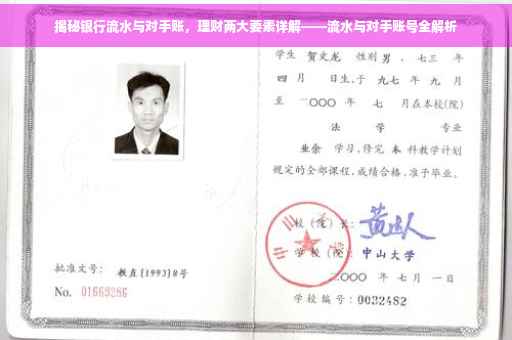 揭秘银行流水与对手账，理财两大要素详解——流水与对手账号全解析
学生 贺文龙 性别 男 、七三 年
四 月 日生,于 九七 年 九 月
至 二〇〇〇 年 七 月在本校(院)
法 学 专业
业余 学习,修完 本 科教学计划
规定的全部课程,成绩合格,准予毕业。
校(院)长:
学校(院): 中山大学
二〇〇〇 年 七 月 一 日
学校编号: 0032482
批准文号: 教直[1993]8号
No. 01669286